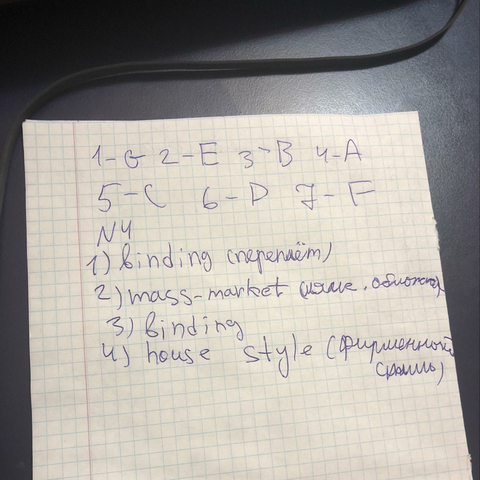 1-G 2-E 3-B 4-A
5-C 6-D 7-F
N4
1) binding (переплёт)
2) mass-market (мягк. обложка)
3) binding
4) house style (фирменной
стиль)